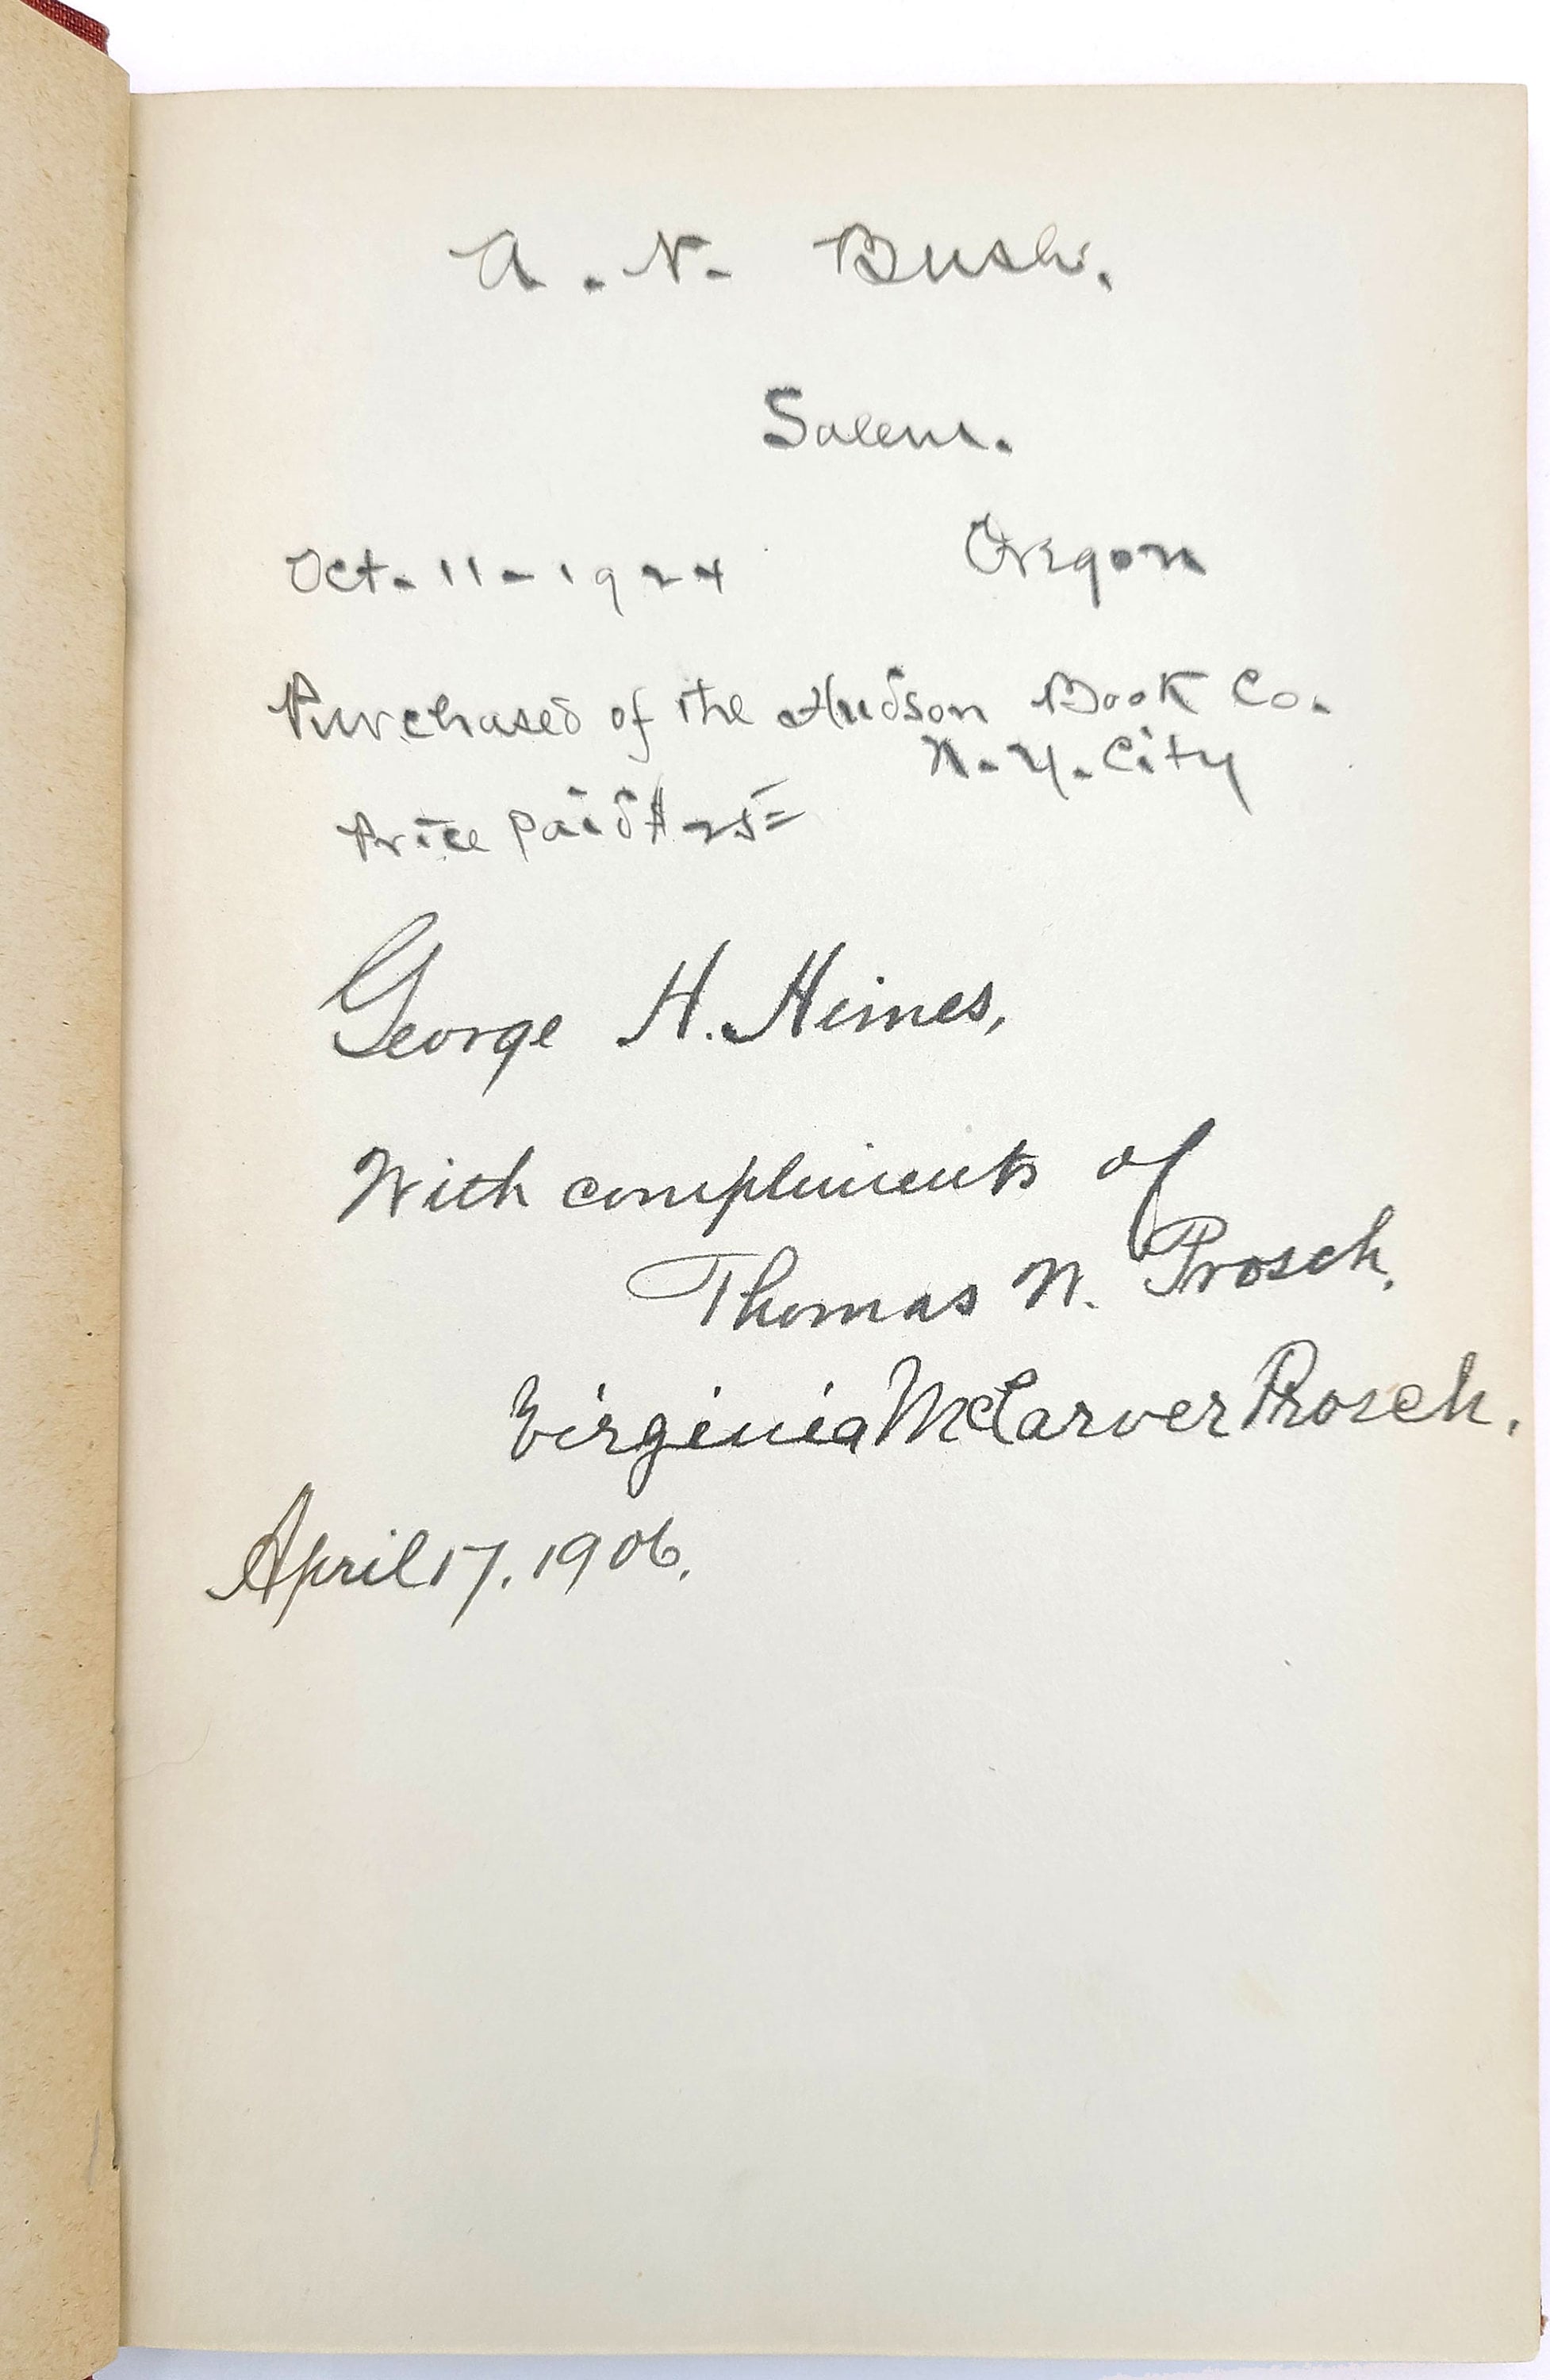 A. N. Bush.
Salem.
Oregon
Oct. 11 - 1924
Purchased of the Hudson Book Co.
N. Y. City
Price paid $25=
George H. Himes,
With compliments of
Thomas W. Prosch.
Virginia McCarver Prosch.
April 17, 1906.